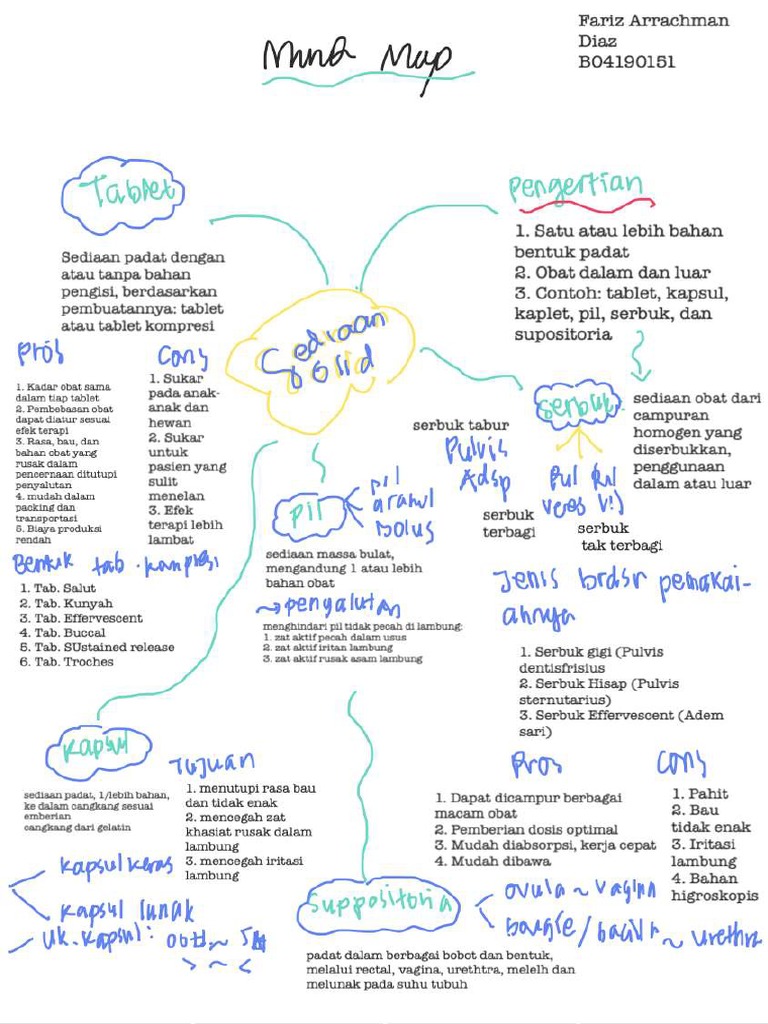 Fariz Arrachman
Diaz
B04190151
Mind Map
Tablet
Sediaan padat dengan
atau tanpa bahan
pengisi, berdasarkan
pembuatannya: tablet
atau tablet kompresi
Pros
1. Kadar obat sama
dalam tiap tablet
2. Pembebasan obat
dapat diatur sesuai
efek terapi
3. Rasa, bau, dan
bahan obat yang
rusak dalam
pencernaan ditutupi
penyalutan
4. mudah dalam
packing dan
transportasi
5. Biaya produksi
rendah
Cons
1. Sukar
pada anak-
anak dan
hewan
2. Sukar
untuk
pasien yang
sulit
menelan
3. Efek
terapi lebih
lambat
Bentuk tab. kompresi
1. Tab. Salut
2. Tab. Kunyah
3. Tab. Effervescent
4. Tab. Buccal
5. Tab. SUstained release
6. Tab. Troches
Pengertian
1. Satu atau lebih bahan
bentuk padat
2. Obat dalam dan luar
3. Contoh: tablet, kapsul,
kaplet, pil, serbuk, dan
supositoria
Sediaan
Solid
Serbuk
sediaan obat dari
campuran
homogen yang
diserbukkan,
penggunaan
dalam atau luar
serbuk tabur
Pulvis
Adsp
serbuk
terbagi
serbuk
tak terbagi
Jenis brdsr pemakai-
annya
1. Serbuk gigi (Pulvis
dentisfrisius
2. Serbuk Hisap (Pulvis
sternutarius)
3. Serbuk Effervescent (Adem
sari)
Pros
1. Dapat dicampur berbagai
macam obat
2. Pemberian dosis optimal
3. Mudah diabsorpsi, kerja cepat
4. Mudah dibawa
Cons
1. Pahit
2. Bau
tidak enak
3. Iritasi
lambung
4. Bahan
higroskopis
Pil
pil
granul
bolus
sediaan massa bulat,
mengandung 1 atau lebih
bahan obat
penyalutan
menghindari pil tidak pecah di lambung:
1. zat aktif pecah dalam usus
2. zat aktif iritan lambung
3. zat aktif rusak asam lambung
Kapsul
sediaan padat, 1/lebih bahan,
ke dalam cangkang sesuai
emberian
cangkang dari gelatin
Tujuan
1. menutupi rasa bau
dan tidak enak
2. mencegah zat
khasiat rusak dalam
lambung
3. mencegah iritasi
lambung
kapsul keras
kapsul lunak
uk. kapsul:
> ~ <
Suppositoria
ovula ~ vagina
~ urethra
padat dalam berbagai bobot dan bentuk,
melalui rectal, vagina, urethtra, melelh dan
melunak pada suhu tubuh